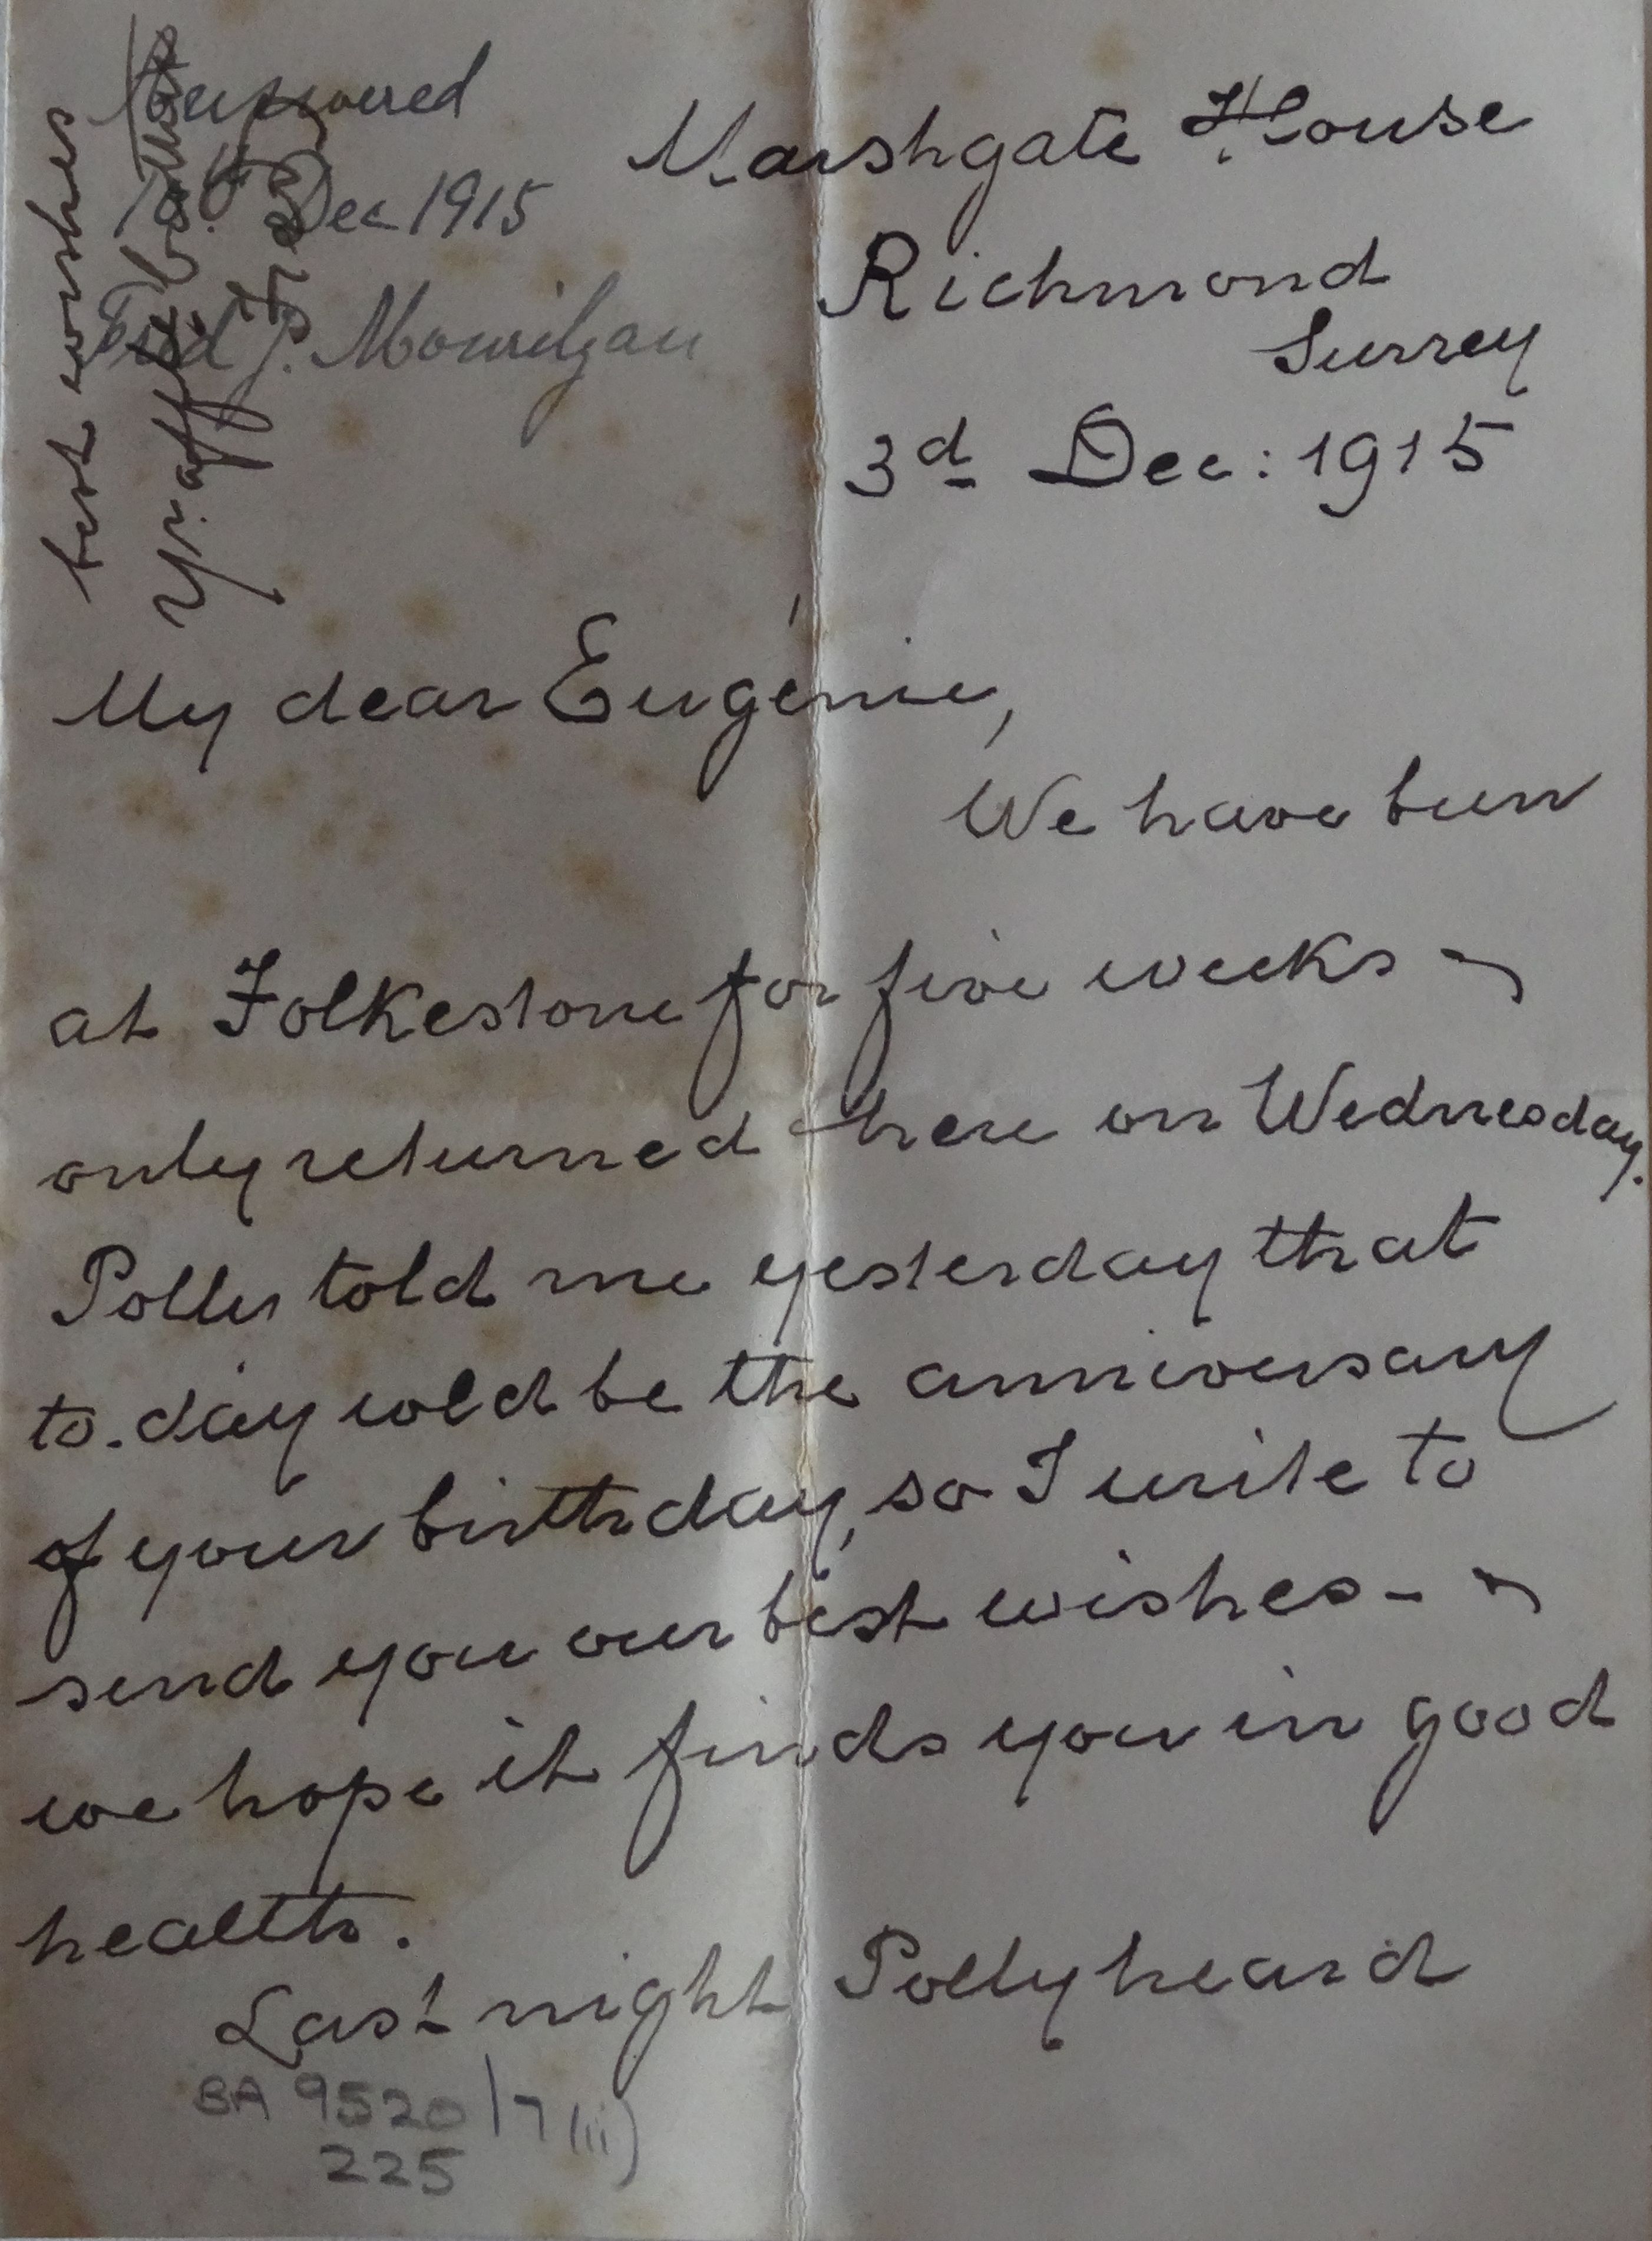 Answered
Dec 1915
Fred J.
best wishes
Yr. afft
Marshgate House
Richmond
Surrey
3d Dec: 1915
My dear Eugénie,
We have been
at Folkestone for five weeks -
only returned here on Wednesday.
Polly told me yesterday that
to-day wold be the anniversary
of your birthday, so I write to
send you our best wishes -
we hope it finds you in good
health.
Last night Polly heard
BA 9520/7(ii)
225